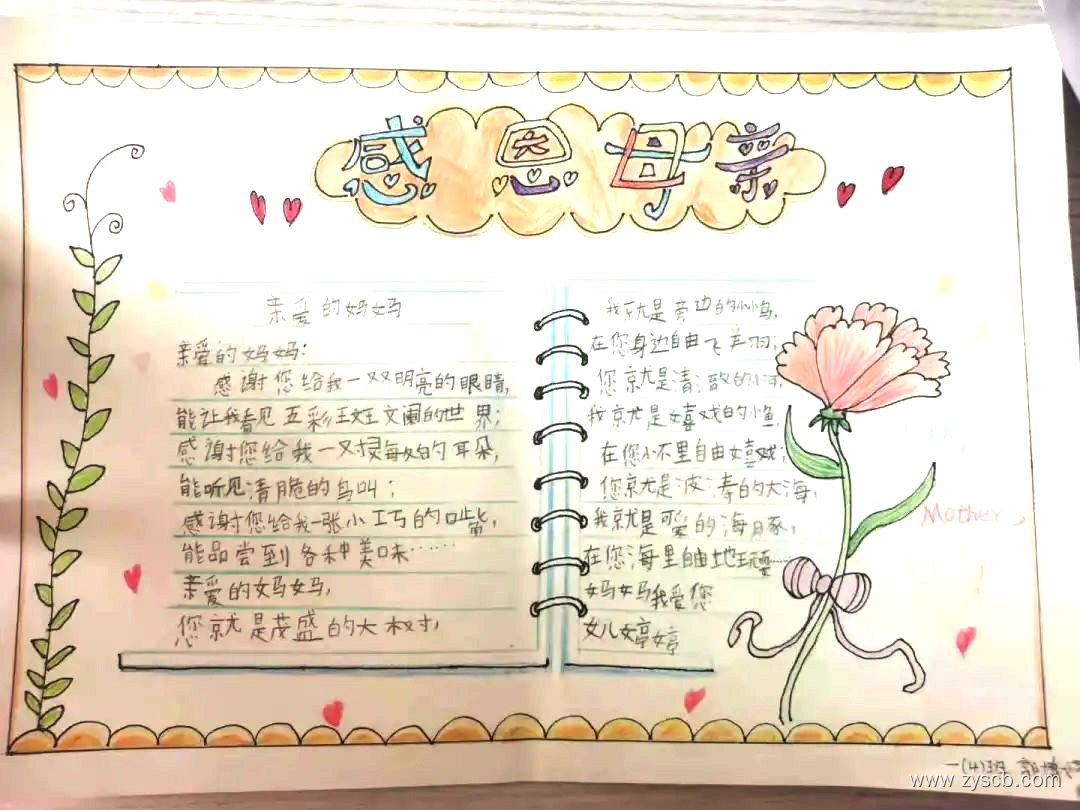 感恩母亲
亲爱的妈妈
亲爱的妈妈:
感谢您给我一双明亮的眼睛,
能让我看见五彩斑斓的世界;
感谢您给我一双灵敏的耳朵,
能听见清脆的鸟叫;
感谢您给我一张小巧的嘴,
能品尝到各种美味……
亲爱的妈妈,
您就是茂盛的大树,
我就是旁边的小小鸟,
在您身边自由飞翔;
您就是清澈的小河,
我就是嬉戏的小鱼,
在您小河里自由嬉戏;
您就是波涛的大海,
我就是可爱的海豚,
在您海里自由地玩耍……
妈妈我爱您
女儿婷婷
Mother's
一(4)班 郭
www.zyscb.com